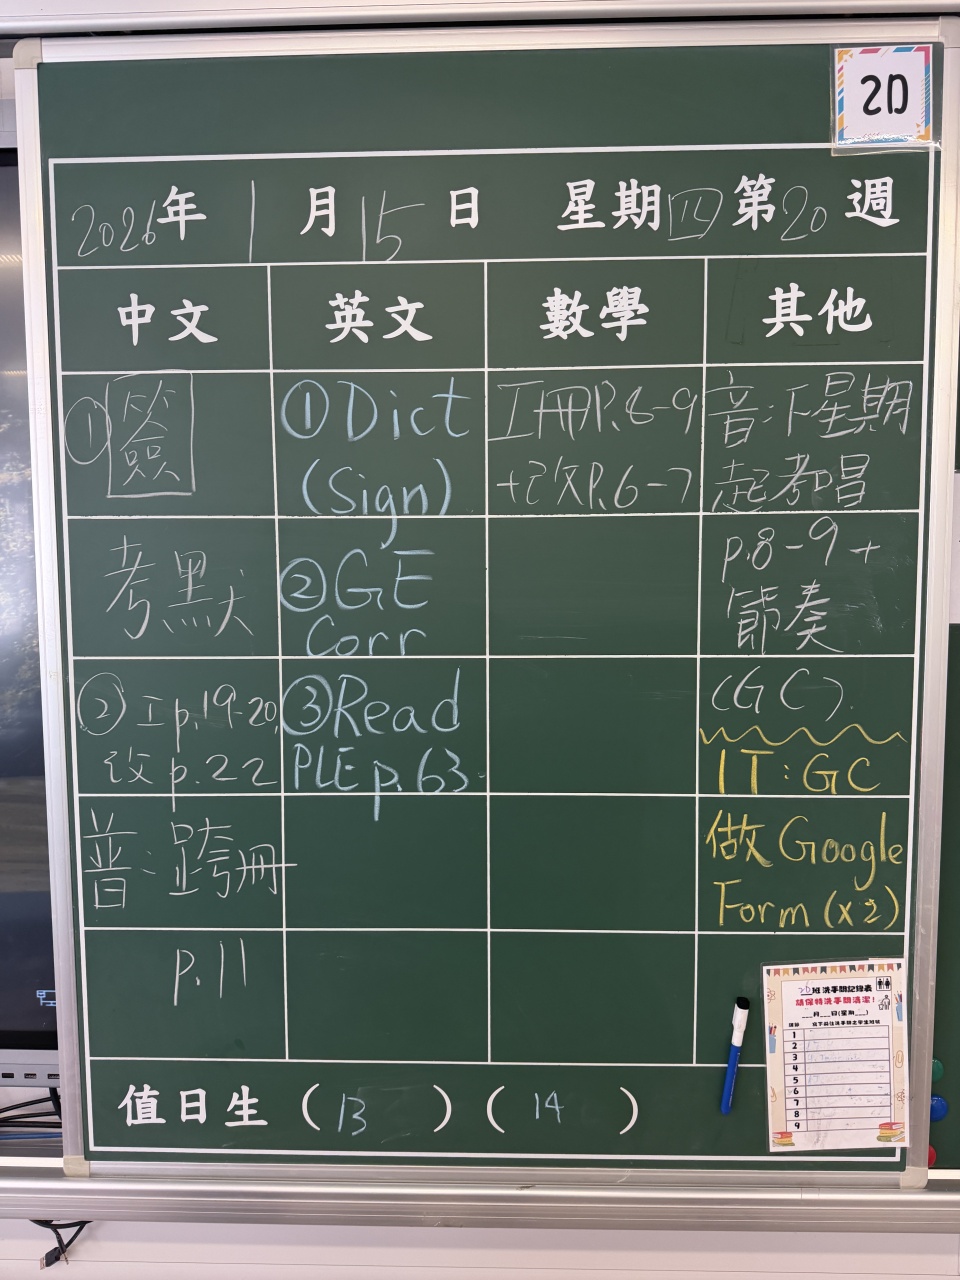 2D
2026年1月15日 星期四第20週
中文
英文
數學
其他
①簽
考默
②工p.19-20,
改p.22
普：跨冊
p.11
①Dict
(Sign)
②GE
Corr
③Read
PLE p.63
工冊P.8-9
+改P.6-7
音：下星期
起考唱
p.8-9+
節奏
(GC)
IT：GC
做Google
Form(x2)
值日生（13）（14）
班洗手間記錄表
請保持洗手間清潔！
___月___日(星期___)
1
2
3
4
5
6
7
8
9